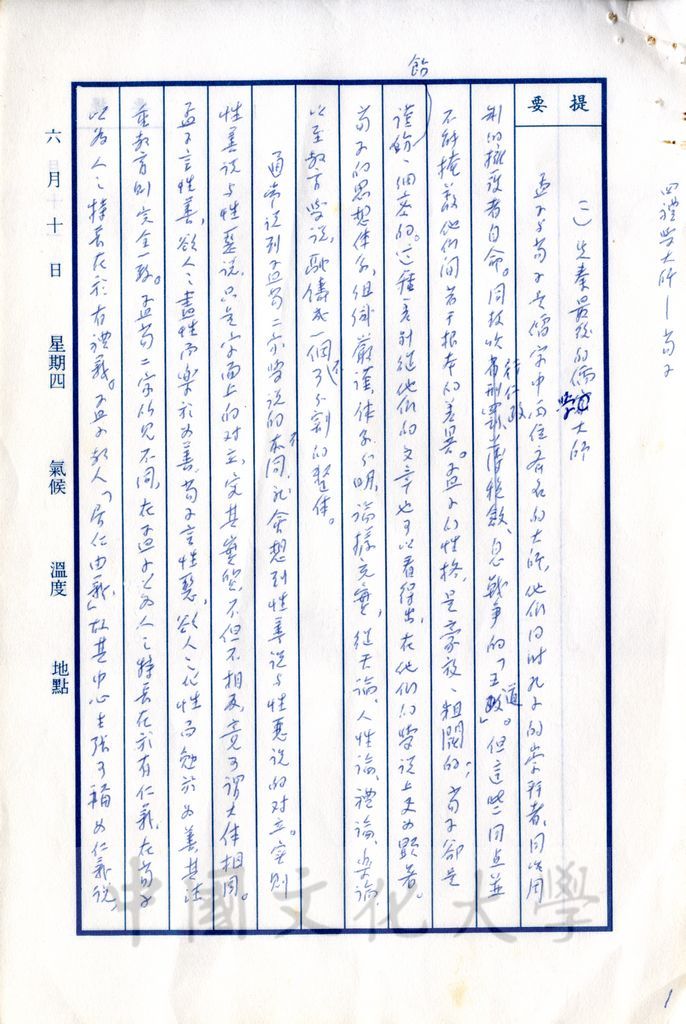 四、禮學大師—荀子
提要
(一)先秦最後的儒學大師
孟子与荀子是儒家中两位齐名的大師,他們同时孔子的崇拜者,同以周
制的擁護者自命。同鼓吹省刑罰薄稅斂、息戰爭的「王道」。但這些同点並
待行政
不能掩蓋他們间若干根本的差異。孟子的性格,是豪放、粗闊的;荀子卻是
謹飭、细密的。這種差别從他們的文章也可以看得出,在他們的學说上更为顯著。
飭
荀子的思想体系,组织嚴谨,体系分明,論樣充實,從天論、人性論、禮論、樂論、
以至教育學说,融鑄成一個不可分割的整体。
通常谈到孟荀二家學说的不同,就會想到性善说与性惡说的对立。实则
性善说与性惡说,只是字面上的对立,究其實質,不但不相反,竟可謂大体相同。
孟子言性善,欲人之盡性而樂於为善,荀子言性惡,欲人之化性而勉於为善,其注
重教育则完全一致。孟荀二家所見不同,在孟子以为人之特長在於有仁義,在荀子
以为人之特長在於有禮義。孟子教人「居仁由義」故其中心主張可稱为仁義说,
六月十日 星期四 氣候 溫度 地點
中國文化大學
1